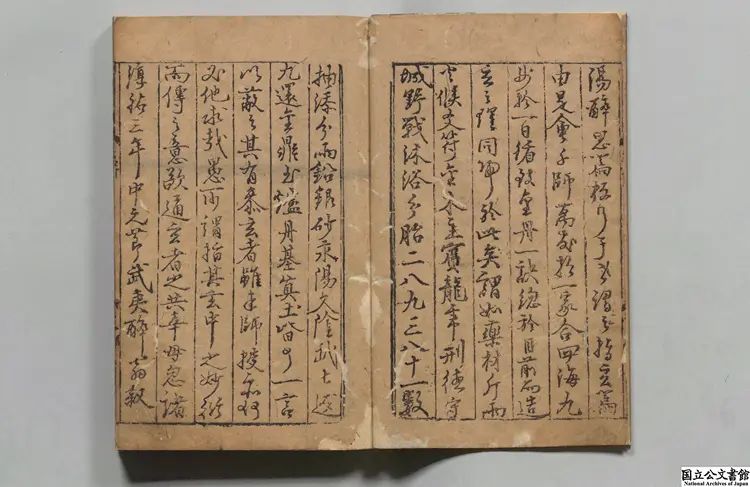 陽醉思極予謂之指玄篇
由是會千師萬友於一家合四海九
州於一日金丹一訣總於目前而造
玄之同歸於此矣謂如藥材斤兩
火候文符金木主賓龍虎刑德守
城野戰沐浴分胎二八九三八十一數
抽添分兩鉛銀砂汞陽文陰武七返
九還金鼎玉爐丹基真土皆可一言
以蔽之其有參玄者雖未師授亦何
必他求哉愚所謂指其玄中之妙衍
而傳之意欲通玄者之共幸毋忽諸
淳祐三年中元節武夷醉翁敘
国立公文書館
National Archives of Japan